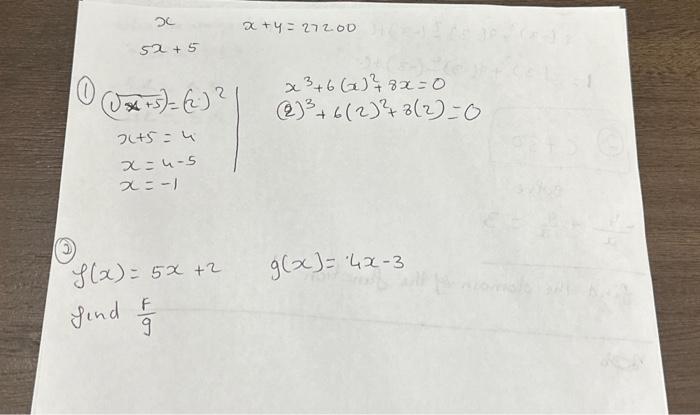 x
x + y = 27200
5x + 5
① (√x+5) = (2)²
x+5 = 4
x = 4-5
x = -1
x³ + 6(x)² + 8x = 0
(2)³ + 6(2)² + 8(2) = 0
②
f(x) = 5x + 2
g(x) = 4x - 3
find F/g